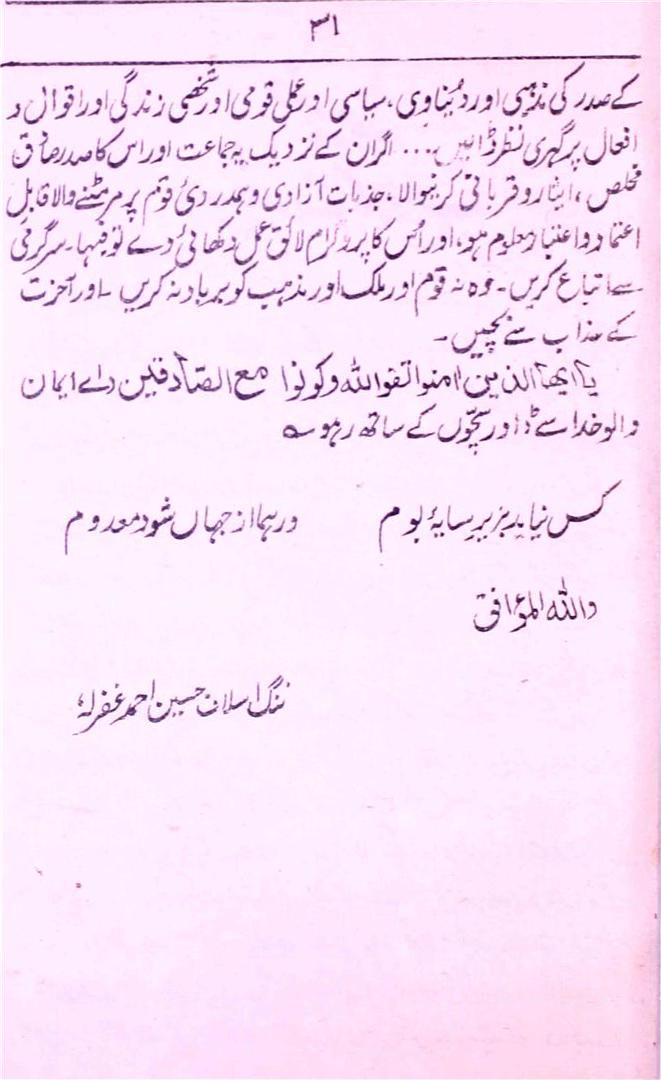 ۳۱
کے صدر کی مذہبی اور دُیناوی، سیاسی اور عملی قومی اور شخصی زندگی اور اقوال و
افعال پر گہری نظر ڈالیں... اگر ان کے نزدیک یہ جماعت اور اس کا صدر صادق
مخلص، ایثار و قربانی کرنیوالا، جذبات آزادی و ہمدردئ قوم پر مرمٹنے والا قابل
اعتماد و اعتبار معلوم ہو، اور اُس کا پروگرام لائق عمل دکھائی دے تو فبہا۔ سرگرمی
سے اتباع کریں۔ وہ نہ قوم اور ملک اور مذہب کو برباد نہ کریں۔ اور آخرت
کے عذاب سے بچیں۔
یا ایھا الذین امنوا اتقو اللہ وکونوا مع الصادقین داے ایمان
والو خدا سے ڈرو اور سچوں کے ساتھ رہو ؎
کس نیاید بزیر سایۂ بوم ورہما از جہاں شود معدوم
واللہ الموافق
ننگ اسلاف حسین احمد غفرلہٗ